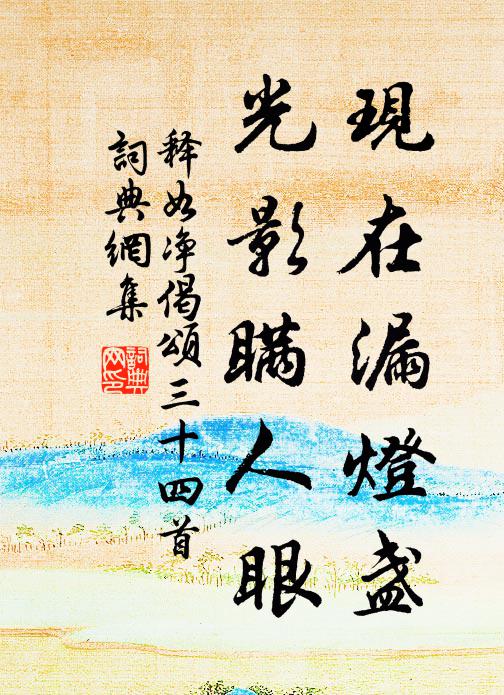 現在漏燈盞
光影瞞人眼
释如净偈頌三十四首
詞典網集
詞典网印